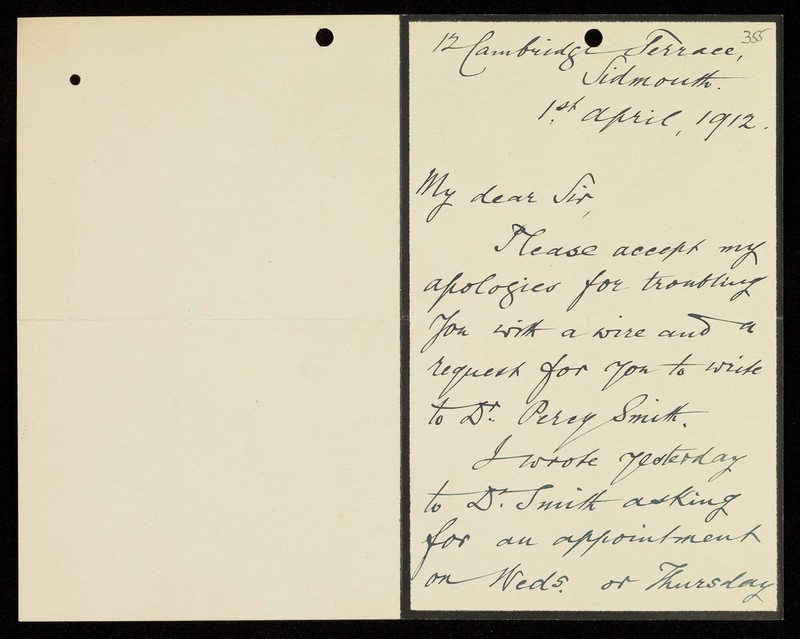 355
12 Cambridge Terrace,
Sidmouth.
1st April, 1912.
My dear Sir,
Please accept my
apologies for troubling
you with a wire and a
request for you to write
to Dr. Percy Smith.
I wrote yesterday
to Dr. Smith asking
for an appointment
on Weds. or Thursday